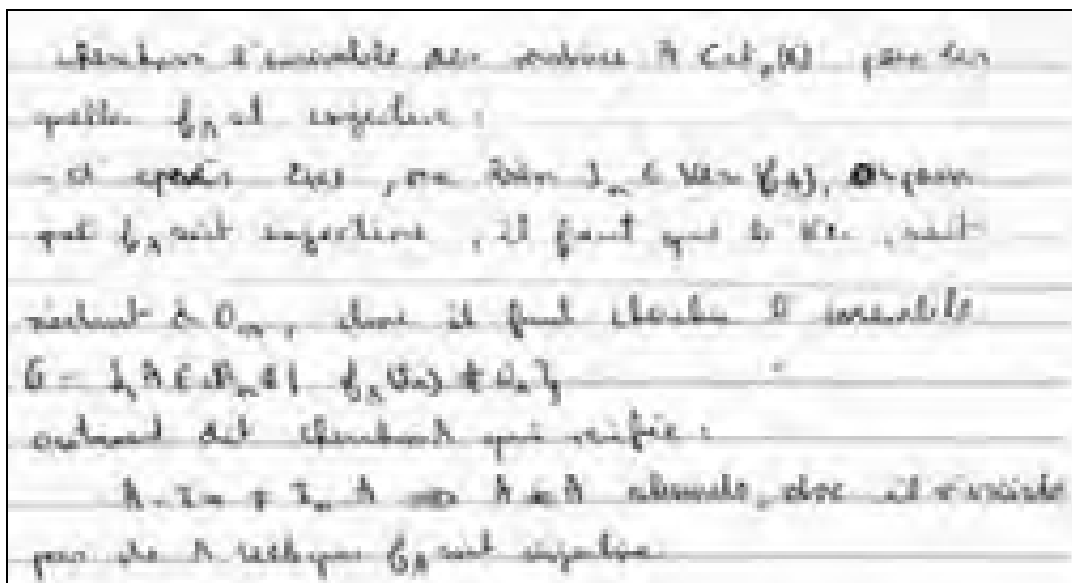 cherchons l'ensemble des matrices A ∈ M_n(K) pour les
quelles f_A est injective :
- d'après , on bien I_n ∈ Ker f_A, pour
que f_A soit injective, il faut que le Ker soit
réduit à 0_n, donc il faut chercher l'ensemble
G = { A ∈ M_n | f_A(I_n) ≠ 0_n }
autrement dit cherchons qui vérifie :
A.I_n ≠ I_n A => A ≠ A absurde, donc il n'existe
pas de A telle que f_A soit injective.